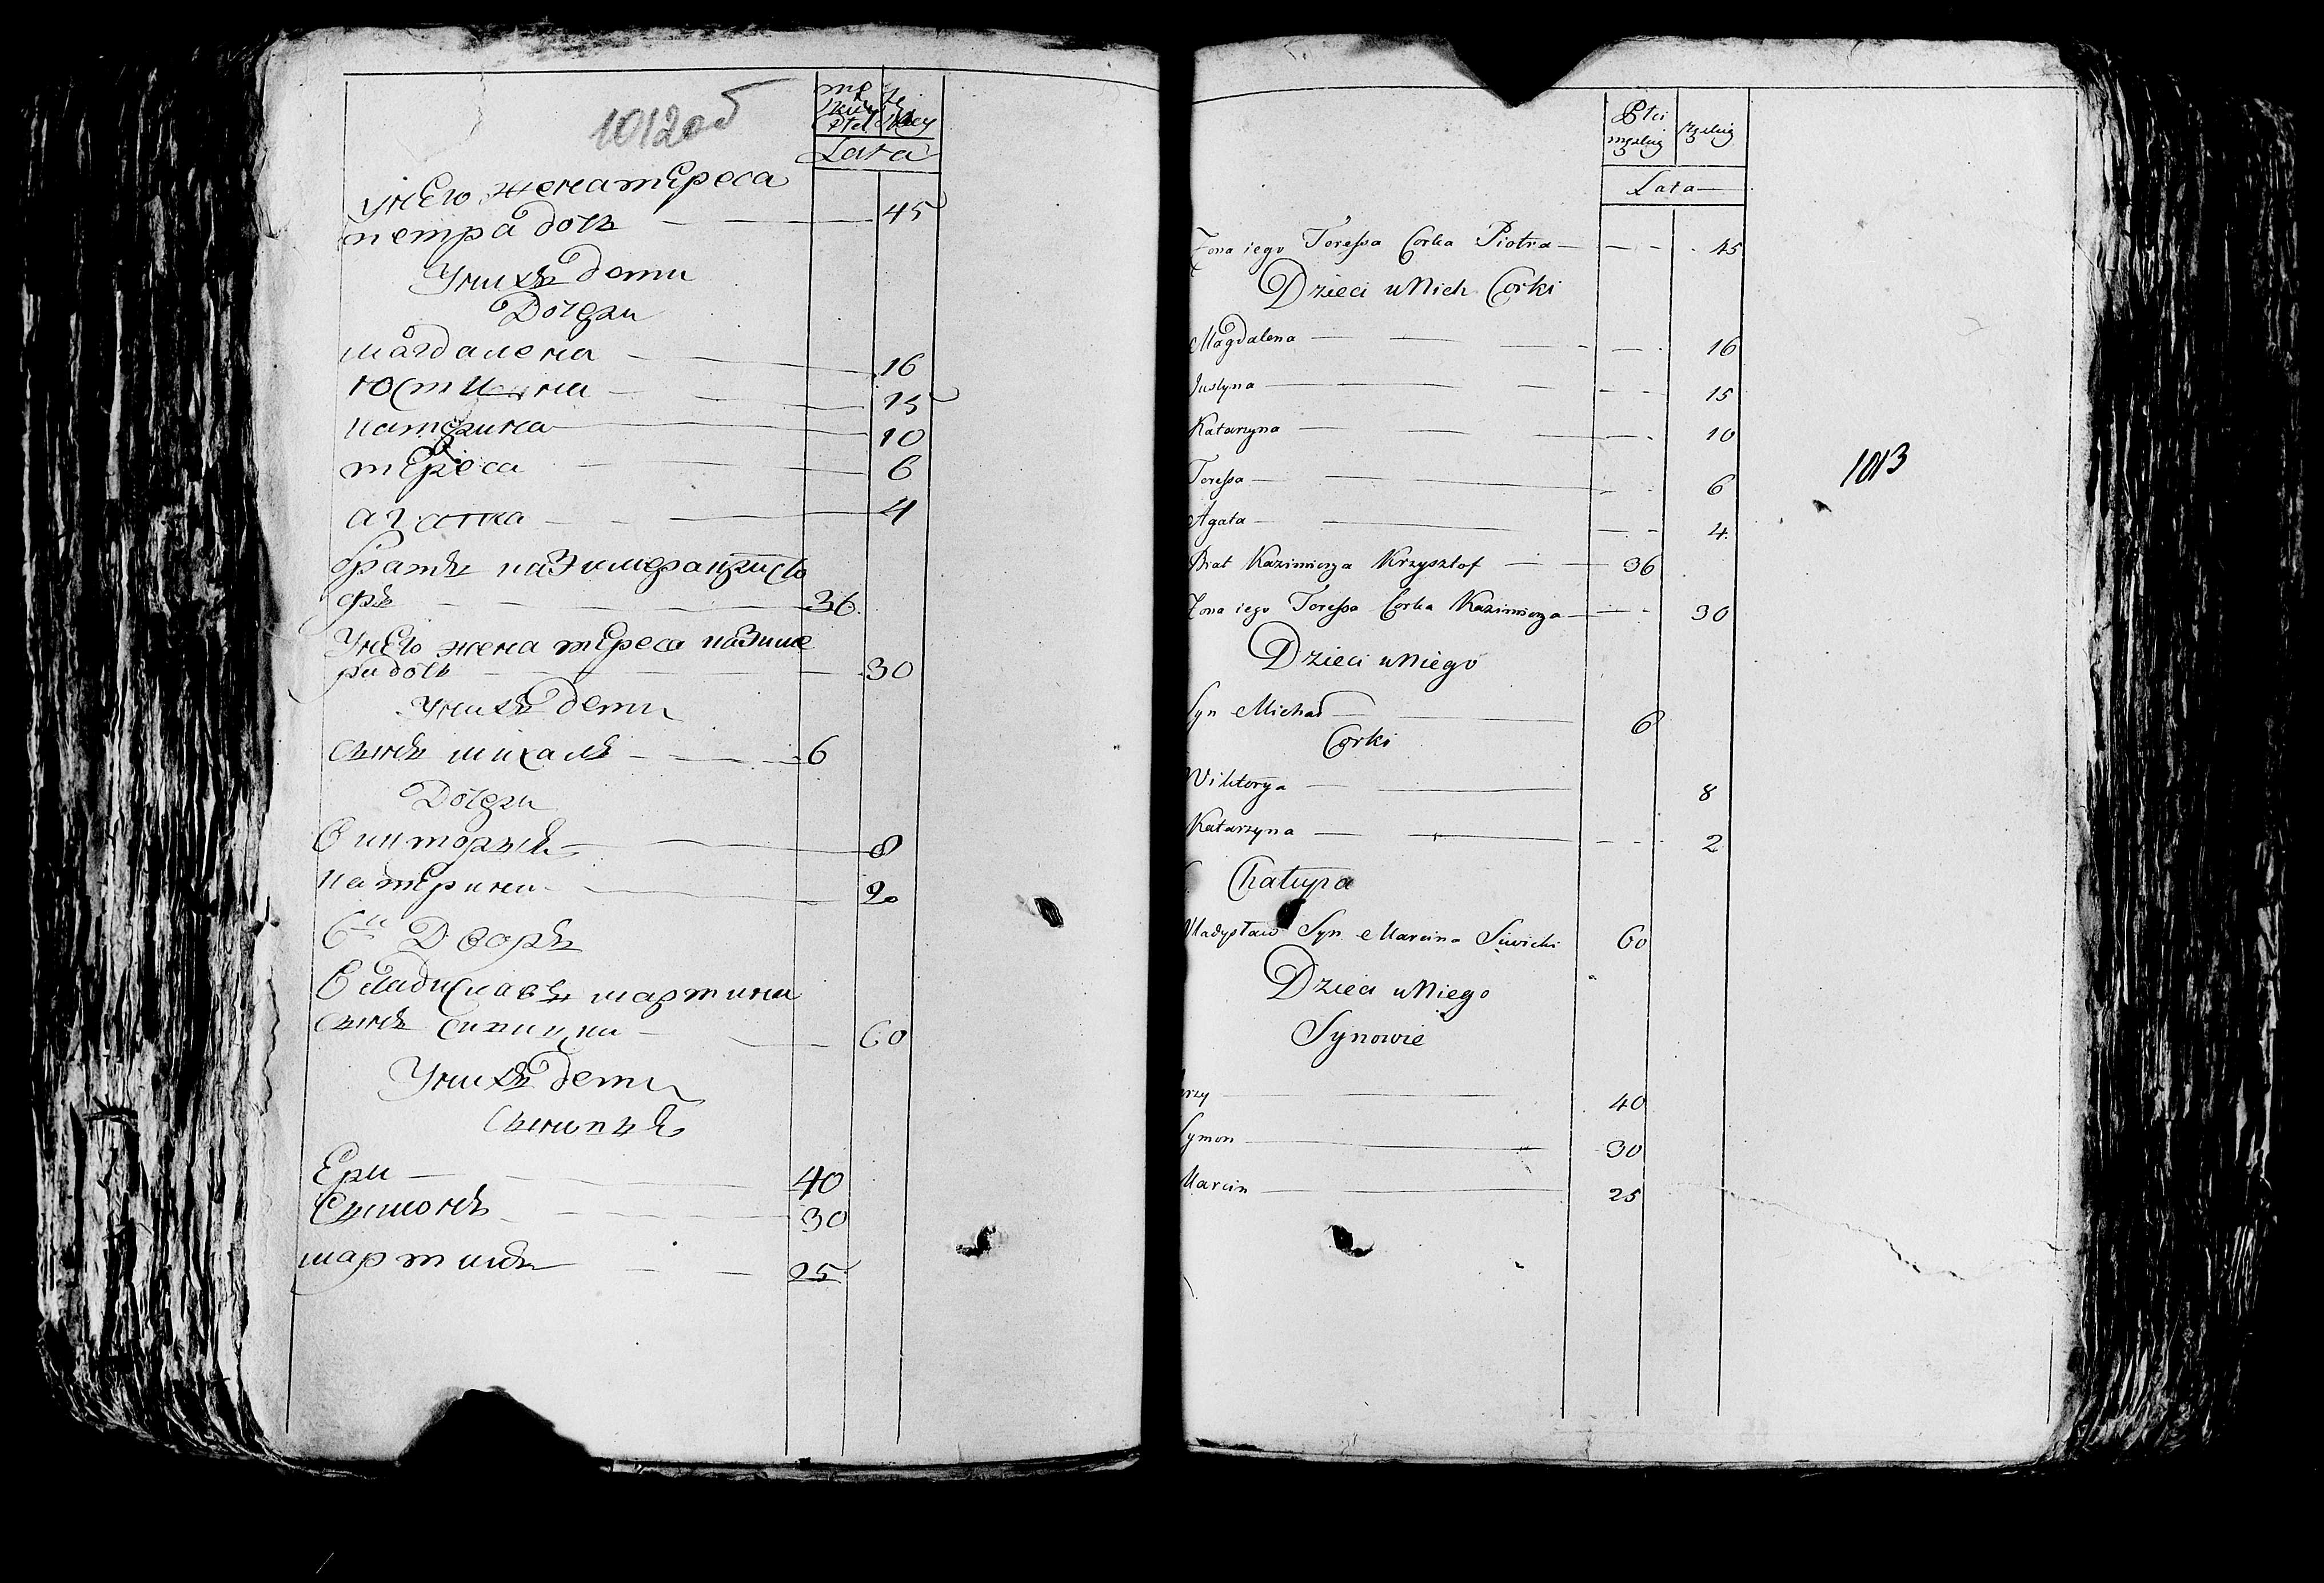 1012об
Lata
у нЕго жена тЕреса
петра дочь 45
У нихъ дети
Дочери
магдалена 16
Юстина 15
катерина 10
тЕреса 6
агатка 4
братъ казимера кристо
фръ 36
У нЕго жена тЕреса казиме
ра дочь 30
У нихъ дети
сынъ михалъ 6
Дочери
викторыя 8
катЕрина 2
6й Дворъ
владиславъ мартина
сынъ 60
У нихъ дети
сыновья
Ери 40
Сымонъ 30
мартинъ 25
Płci
męzkiej żeńskiej
Lata
Żona iego Teressa Corka Piotra 45
Dzieci u Nich Corki
Magdalena 16
Justyna 15
Katarzyna 10
Teressa 6
Agata 4
Brat Kazimierza Krzysztof 36
Żona iego Teressa Corka Kazimierza 30
Dzieci u Niego
Syn Michał 6
Corki
Wiktorya 8
Katarzyna 2
Chałupa
Władysław Syn Marcina Siwicki 60
Dzieci u Niego
Synowie
erzy 40
Symon 30
Marcin 25
1013